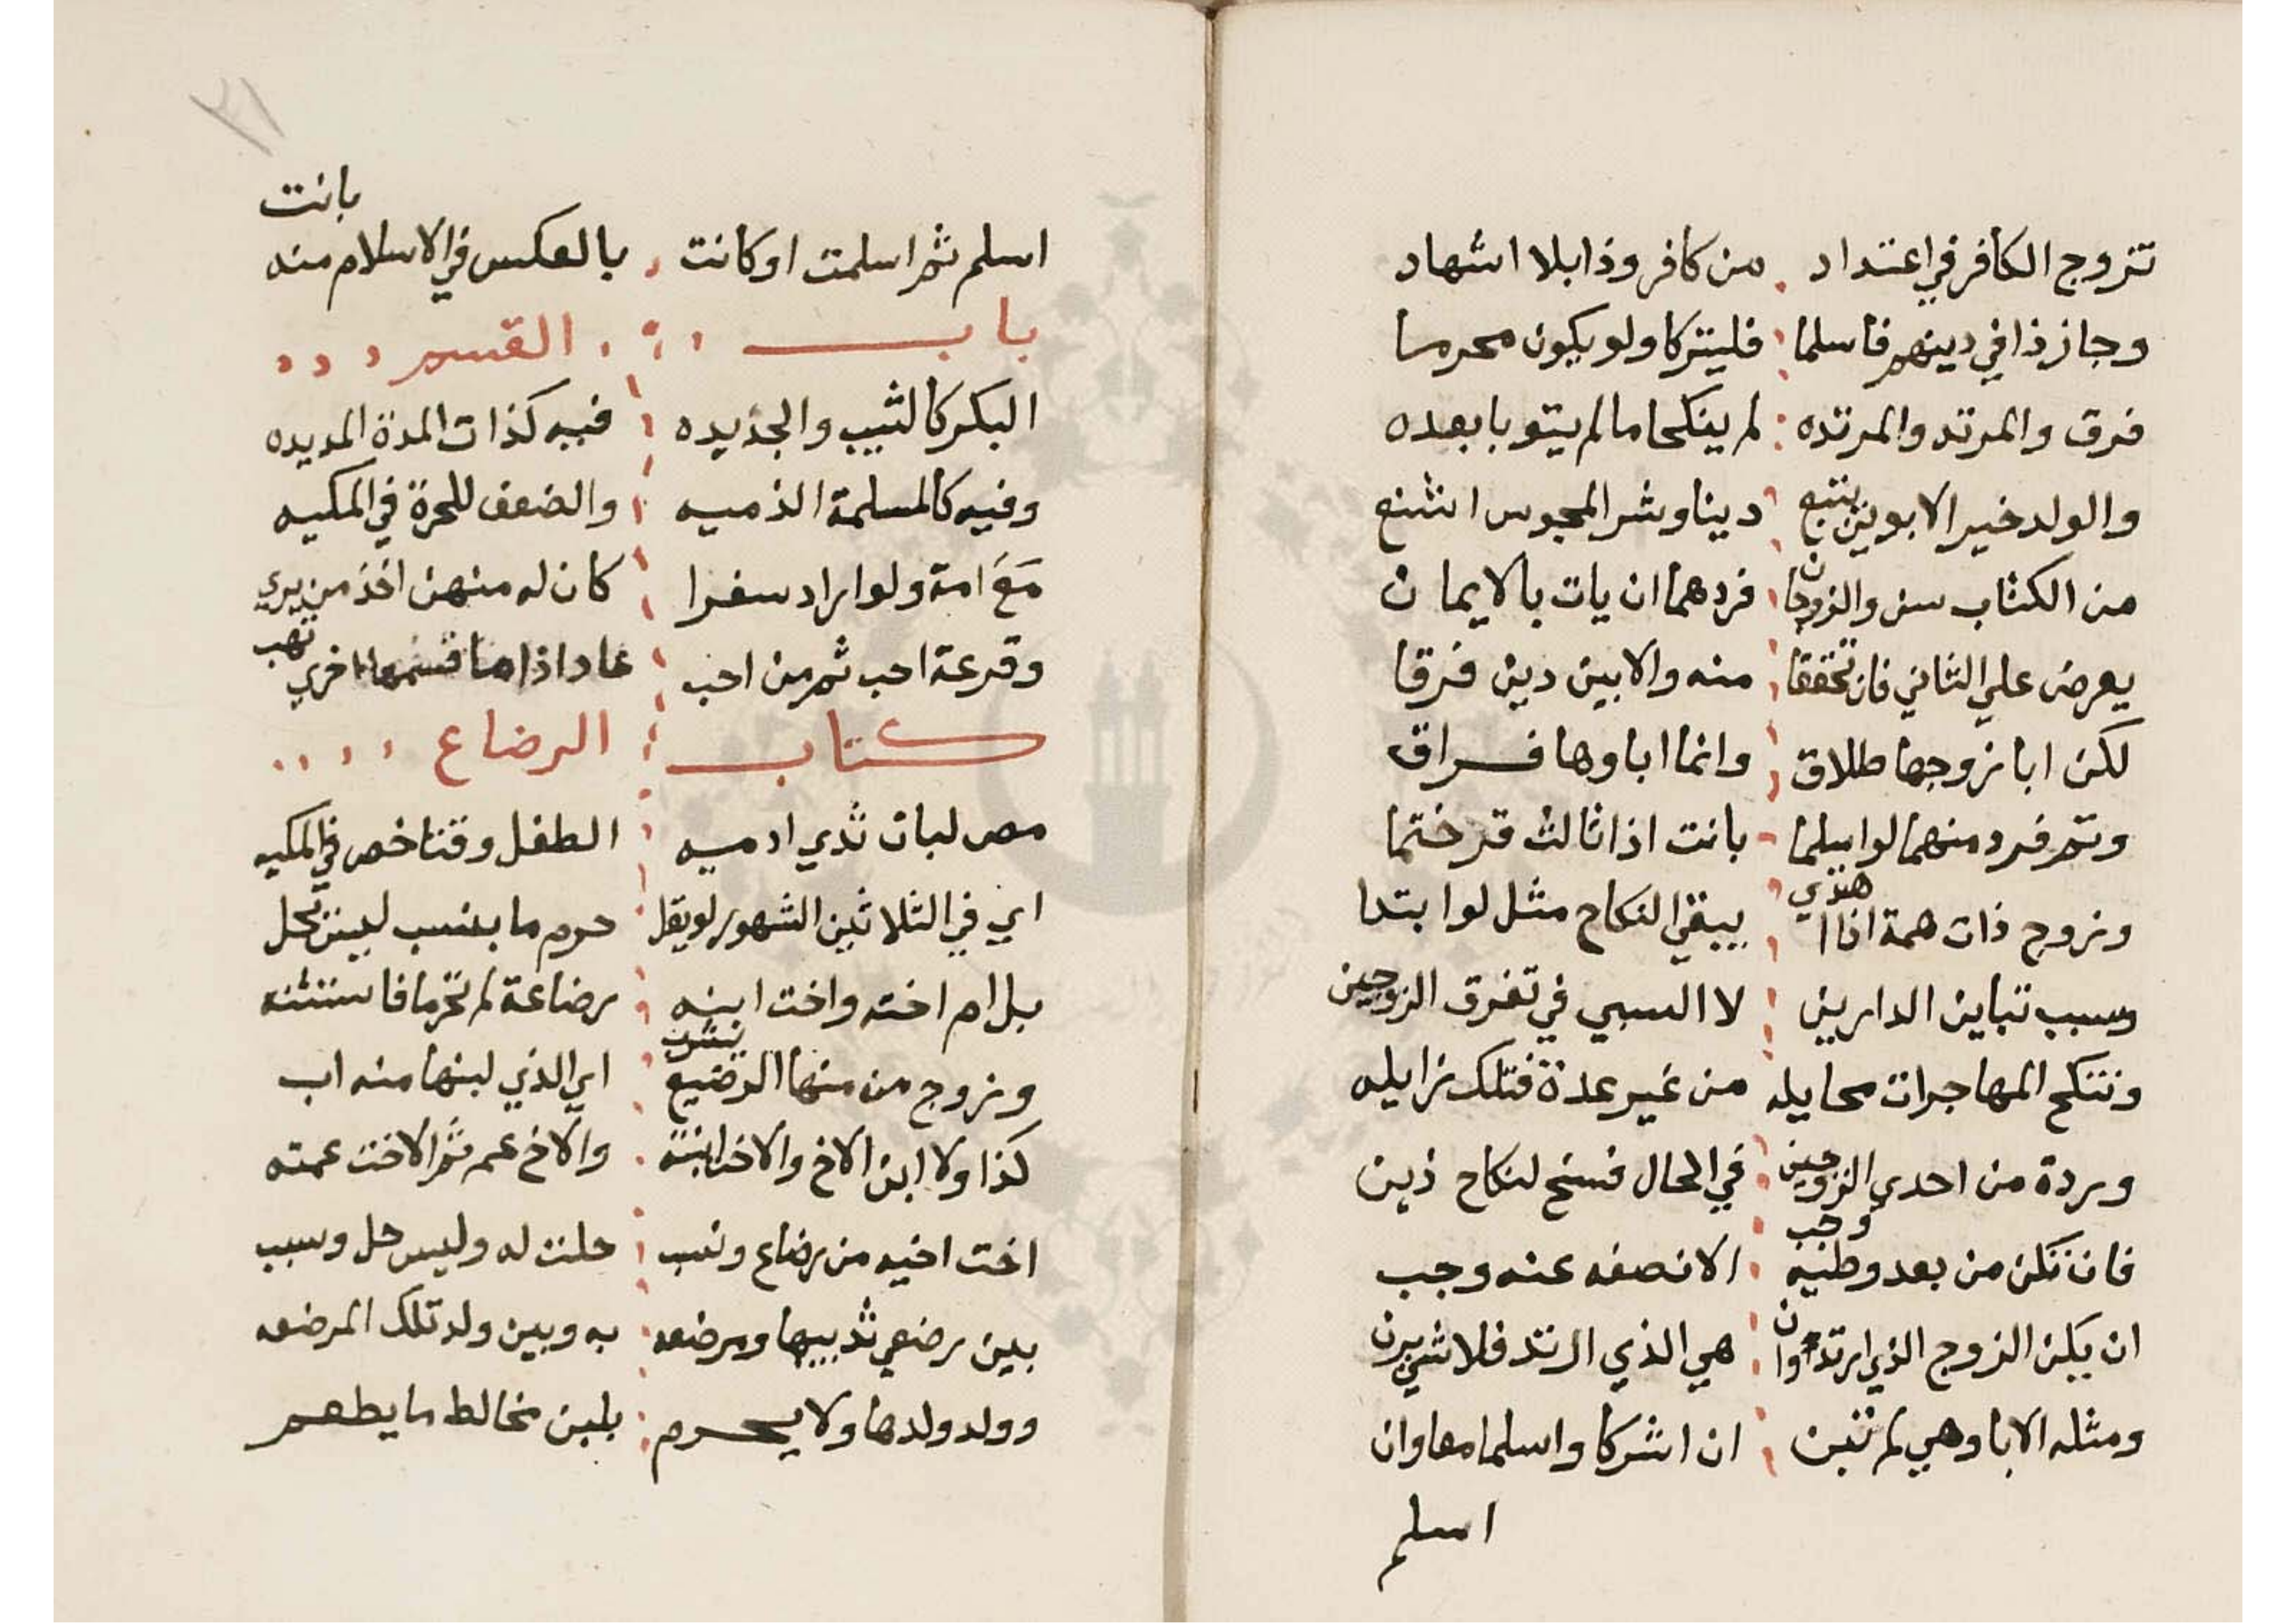 تزوج الكافر في اعتداد من كافر وذا بلا اشهاد
وجاز ذا في دينهم فاسلما فليتركا ولو يكون محرما
فرق والمرتد والمرتده لم ينكحا ما لم يتوبا بعده
والولد خير الابوين يتبع دينا وشر المجوس اشنع
من الكتاب سن والزوجان فردهما ان يات بالايمان
يعرض علي الثاني فان تحققا منه والا بين دين فرقا
لكن ابا زوجها طلاق وانما اباوها فراق
وثم فرد منهما لو اسلما بانت اذا ثالث قر ختما
وزوج ذات همة اذا اهتدي يبقي النكاح مثل لو ابتدا
وسبب تباين الدارين لا السبي في تفرق الزوجين
وتنكح المهاجرات محايله من غير عدة فتلك زايله
وردة من احدي الزوجين في الحال فسخ لنكاح ذين
فان تكن من بعد وطئيه وجب الا نصفه عنه وجب
ان يكن الزوج الذي ارتد وان هي الذي ارتد فلا شي يرن
ومثله الابا وهي لم تبن ان اشركا واسلما معا وان
اسلم
٣١
اسلم ثم اسلمت او كانت بالعكس في الاسلام منه بانت
باب القسم
البكر كالثيب والجديده فيه كذات المدة المديده
وفيه كالمسلمة الذميه والضعف للحرة في المكيه
مع امة ولو اراد سفرا كان له منهن اخذ من يري
وقرعة احب ثم من احب عاد اذا ما قسمها اخري تهب
كتاب الرضاع
مص لبان ثدي ادميه الطفل وقتا خص في المكيه
اي في الثلاثين الشهور لو يقل حرم ما بنسب لبس تحل
بل ام اخته واخت ابنه رضاعة لم تحرما فاستثنه
وزوج من منها الرضيع يشرب اي الذي لبنها منه اب
كذا ولا ابن الاخ والاخت ابنته والاخ عم ثم الاخت عمته
اخت اخيه من رضاع ونسب حلت له وليس حل وسبب
بين رضيعي ثدييها ومرضعه به وبين ولد تلك المرضعه
وولد ولدها ولا يحرم بلبن مخالط ما يطعم